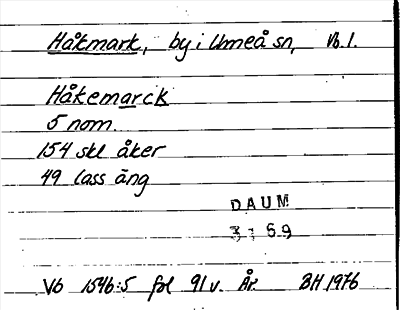 Håkmark, by i Umeå sn, Vb.l.
Håkemarck
5 nom.
154 skl åker
49 lass äng
DAUM
3:59
Vb 1546:5 fol 91v. År. BH 1976